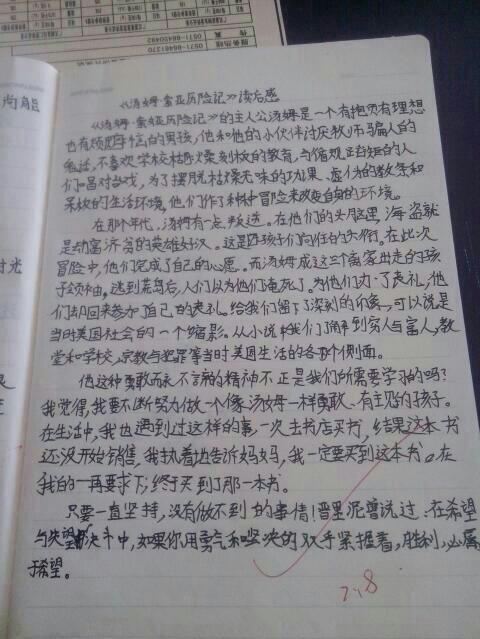 《汤姆·索亚历险记》读后感
《汤姆·索亚历险记》的主人公汤姆是一个有抱负有理想
也有烦恼的男孩,他和他的小伙伴讨厌牧师骗人的
鬼话,不喜欢学校枯燥刻板的教育,与循规蹈矩的人
们唱对台戏,为了摆脱枯燥无味的功课、虚伪的教条和
呆板的生活环境,他们作了种种冒险来改变自身的环境。
在那个年代,汤姆有一点叛逆。在他们的头脑里,海盗就
是劫富济贫的英雄好汉。这是孩子们向往的大侠。在此次
冒险中,他们完成了自己的心愿。而汤姆成这三个离家出走的孩
子领袖。逃到荒岛后,人们以为他们淹死了。为他们办了丧礼,他
们却回来参加了自己的丧礼。给我们留下了深刻的印象,可以说是
当时美国社会的一个缩影。从小说中我们了解到穷人与富人,教
堂和学校,宗教与犯罪等当时美国生活的各个侧面。
他这种勇敢而永不言弃的精神不正是我们所需要学习的吗?
我觉得,我要不断努力做一个像汤姆一样勇敢、有主见的孩子。
在生活中,我也遇到过这样的事,一次去书店买书,结果这本书
还没开始销售,我执着地告诉妈妈,我一定要买到这本书。在
我的一再要求下,终于买到了那一本书。
只要一直坚持,没有做不到的事情!普里尼曾说过:在希望
与失望的决斗中,如果你用勇气和坚决的双手紧握着,胜利,必属
于希望。
7.8